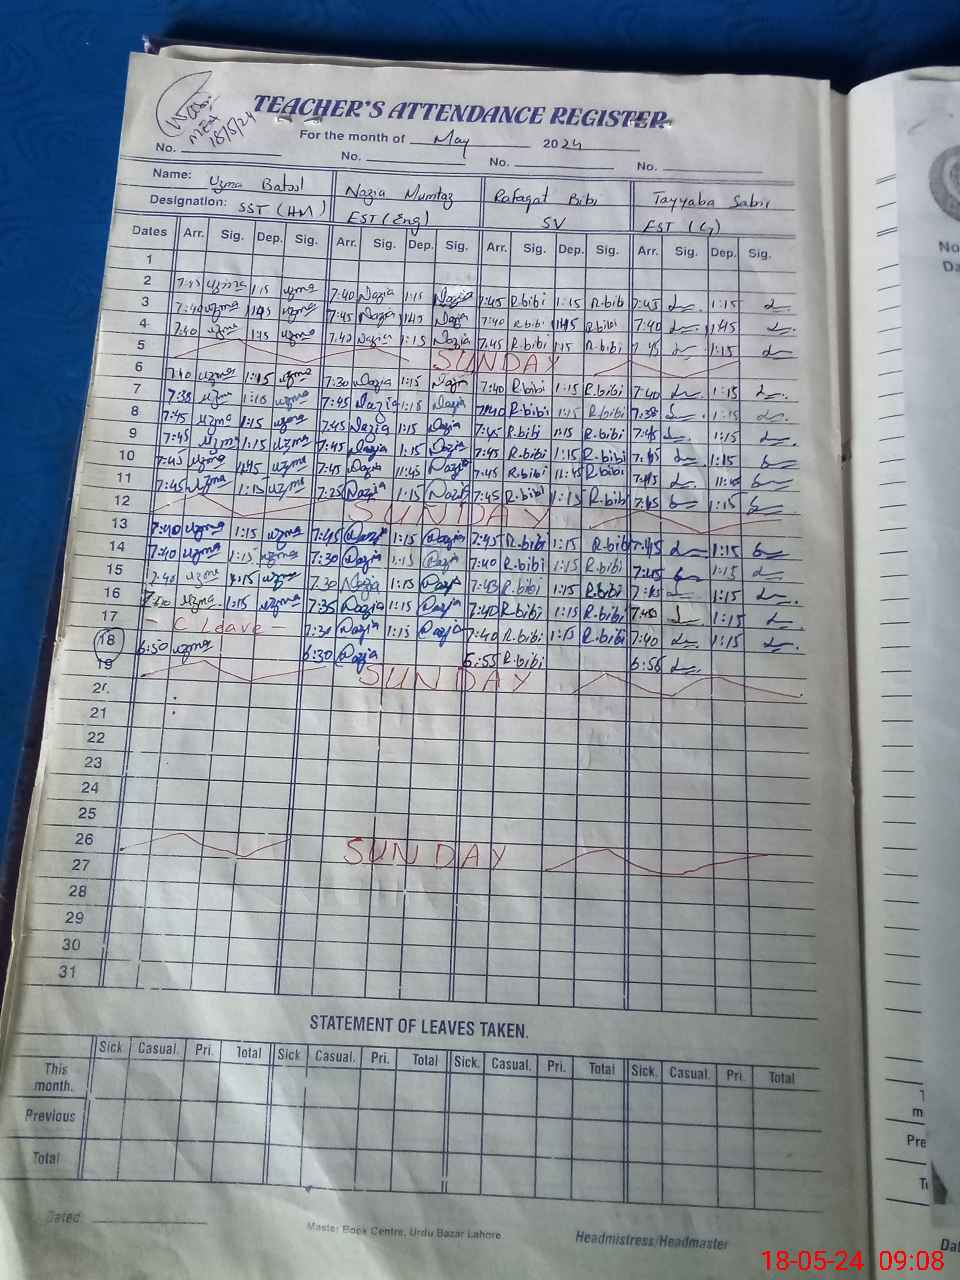 MEA
18/5/24
TEACHER'S ATTENDANCE REGISTER
For the month of May 2024
No. No. No. No.
Name: Uzma Batool Nazia Mumtaz Rafaqat Bibi Tayyaba Sabir
Designation: SST (HM) EST (Eng) SV EST (G)
Dates Arr. Sig. Dep. Sig. Arr. Sig. Dep. Sig. Arr. Sig. Dep. Sig. Arr. Sig. Dep. Sig.
1
2 uzma 1:15 uzma 7:40 Nazia 1:15 Nazia 7:45 R.bibi 1:15 R.bib 7:45 1:15
3 7:40 uzma uzma 7:45 Nazia Nazia 7:40 R.bibi 11:45 R.bibi 7:40 11:45
4 7:40 uzma uzma Nazia 1:15 Nazia 7:45 R.bibi 1:15 R.bibi 7:45 1:15
5 SUNDAY
6 7:40 uzma 1:15 uzma 7:30 Nazia 1:15 Nazia 7:40 R.bibi 1:15 R.bibi 7:40 1:15
7 7:38 uzma uzma 7:45 Nazia 1:15 Nazia 7:40 R.bibi 1:15 R.bibi 7:38 1:15
8 7:45 uzma 1:15 uzma 7:45 Nazia 1:15 Nazia 7:45 R.bibi 1:15 R.bibi 7:45 1:15
9 7:45 uzma 1:15 uzma 7:45 Nazia 1:15 Nazia 7:45 R.bibi 1:15 R.bibi 7:45 1:15
10 7:45 uzma 11:45 uzma 7:45 Nazia 11:45 Nazia 7:45 R.bibi 11:45 R.bibi 7:45
11 7:45 uzma 1:15 uzma 7:25 Nazia 1:15 Nazia 7:45 R.bibi 1:15 R.bibi 7:45 1:15
12 SUNDAY
13 7:40 uzma 1:15 uzma 7:45 Nazia 1:15 Nazia 7:45 R.bibi 1:15 R.bibi 7:45 1:15
14 7:40 uzma 1:15 uzma 7:30 Nazia 1:15 Nazia 7:40 R.bibi 1:15 R.bibi 7:45 1:15
15 7:40 uzma 1:15 uzma 7:30 Nazia 1:15 Nazia 7:43 R.bibi 1:15 R.bibi 7:45 1:15
16 uzma 1:15 uzma 7:35 Nazia 1:15 Nazia 7:40 R.bibi 1:15 R.bibi 7:40 1:15
17 - C Leave - 7:30 Nazia 1:15 Nazia 7:40 R.bibi 1:15 R.bibi 7:40 1:15
18 6:50 uzma 6:30 Nazia 6:55 R.bibi 6:56
19 SUNDAY
20
21
22
23
24
25
26 SUNDAY
27
28
29
30
31
STATEMENT OF LEAVES TAKEN.
Sick. Casual. Pri. Total Sick. Casual. Pri. Total Sick. Casual. Pri. Total Sick. Casual. Pri. Total
This
month.
Previous
Total
Dated:
Master Book Centre, Urdu Bazar Lahore
Headmistress/Headmaster
No
Da
m
Pre
Dat
18-05-24 09:08